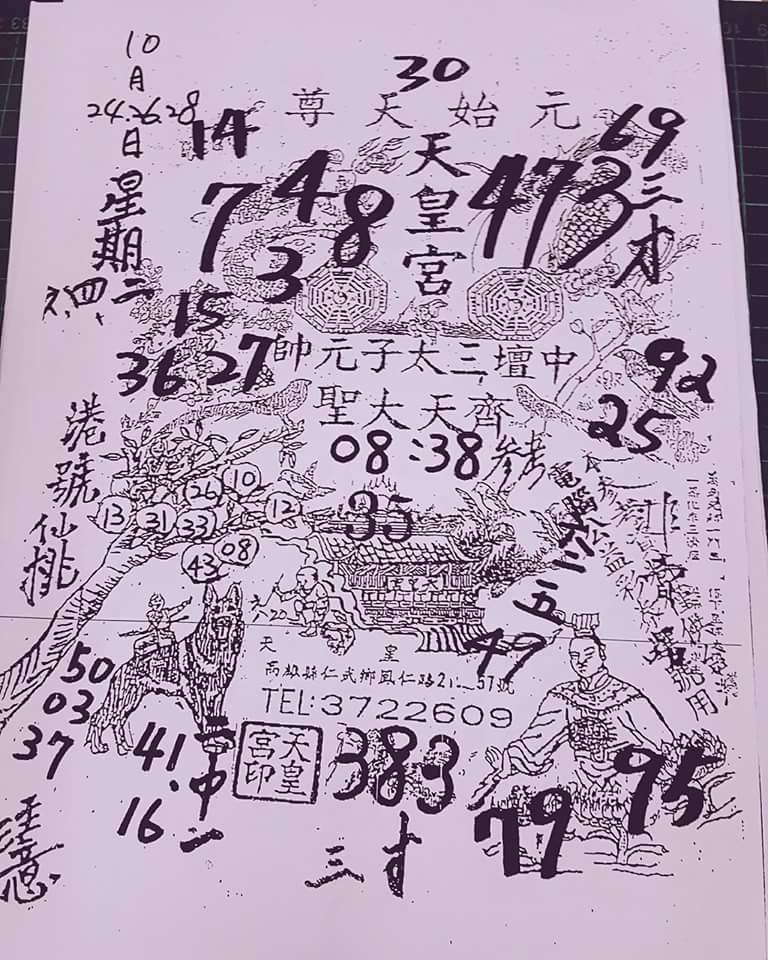 10
月
24.26.28
日
星期
二
四、
六
30
元始天尊
14
69
天皇宮
7 4 8
473
三才
3
15
36 27
中壇三太子元帥
92
齊天大聖
25
08:38 參考
港號仙桃
26 10
13 31 33 12
43 08
35
電腦公益彩
六二五
非賣品
號用
49
六20
天皇
高雄縣仁武鄉鳳仁路21
57號
TEL:3722609
50
03
37
41.
16
二中一
天皇宮印
383
三才
79
95
注意